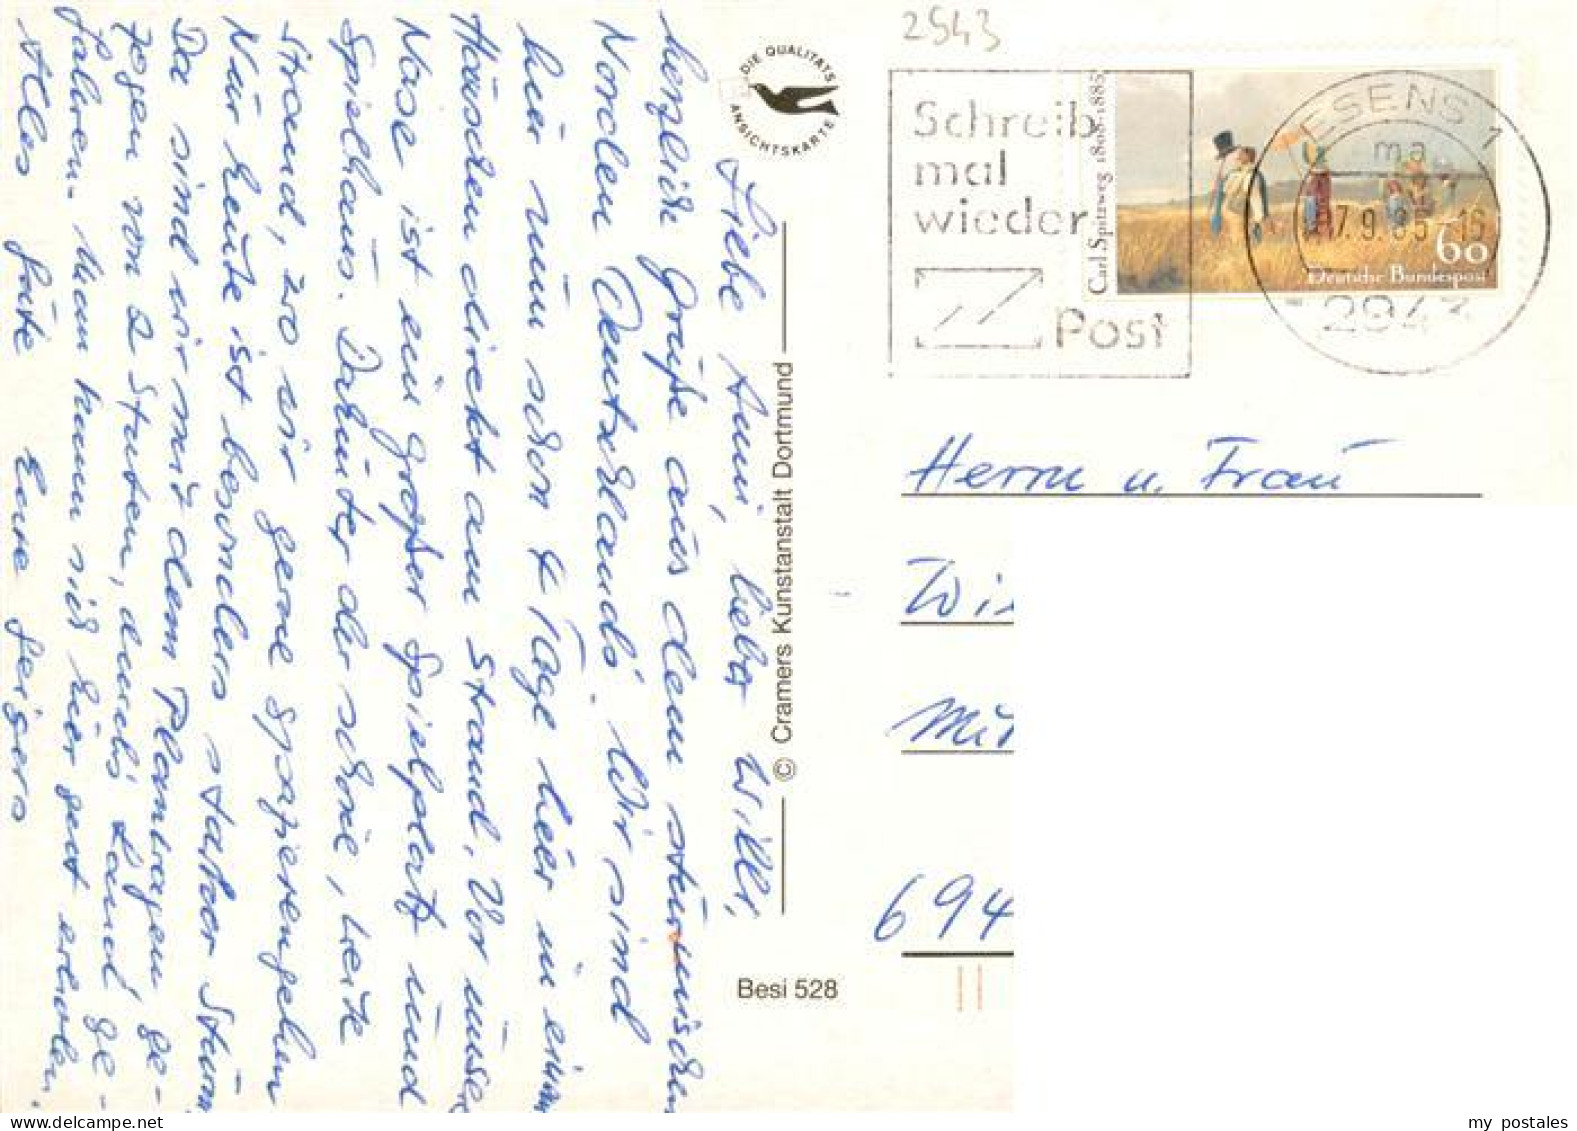 2943
DIE QUALITÄTS
ANSICHTSKARTE
Schreib
mal
wieder
Post
Carl Spitzweg 1808-1885
60
Deutsche Bundespost
ESENS 1
ma
7.9.85-16
2943
Liebe Anni, lieber Willi,
herzliche Grüße aus dem stürmischen
Norden Deutschlands. Wir sind
hier nun schon 4 Tage hier in einem
Häuschen direkt am Strand. Vor unserer
Nase ist ein großer Spielplatz und
Spielhaus. Dahinter der schöne, breite
Strand, wo wir gerne spazierengehen
Nur heute ist besonders starker Sturm
Da sind wir mit dem Planwagen, ge-
zogen von 2 Stuten, durchs Land ge-
fahren. Man kann sich hier gut erholen.
Alles Gute Eure Geigers
© Cramers Kunstanstalt Dortmund
Besi 528
Herrn u. Frau
694
my postales